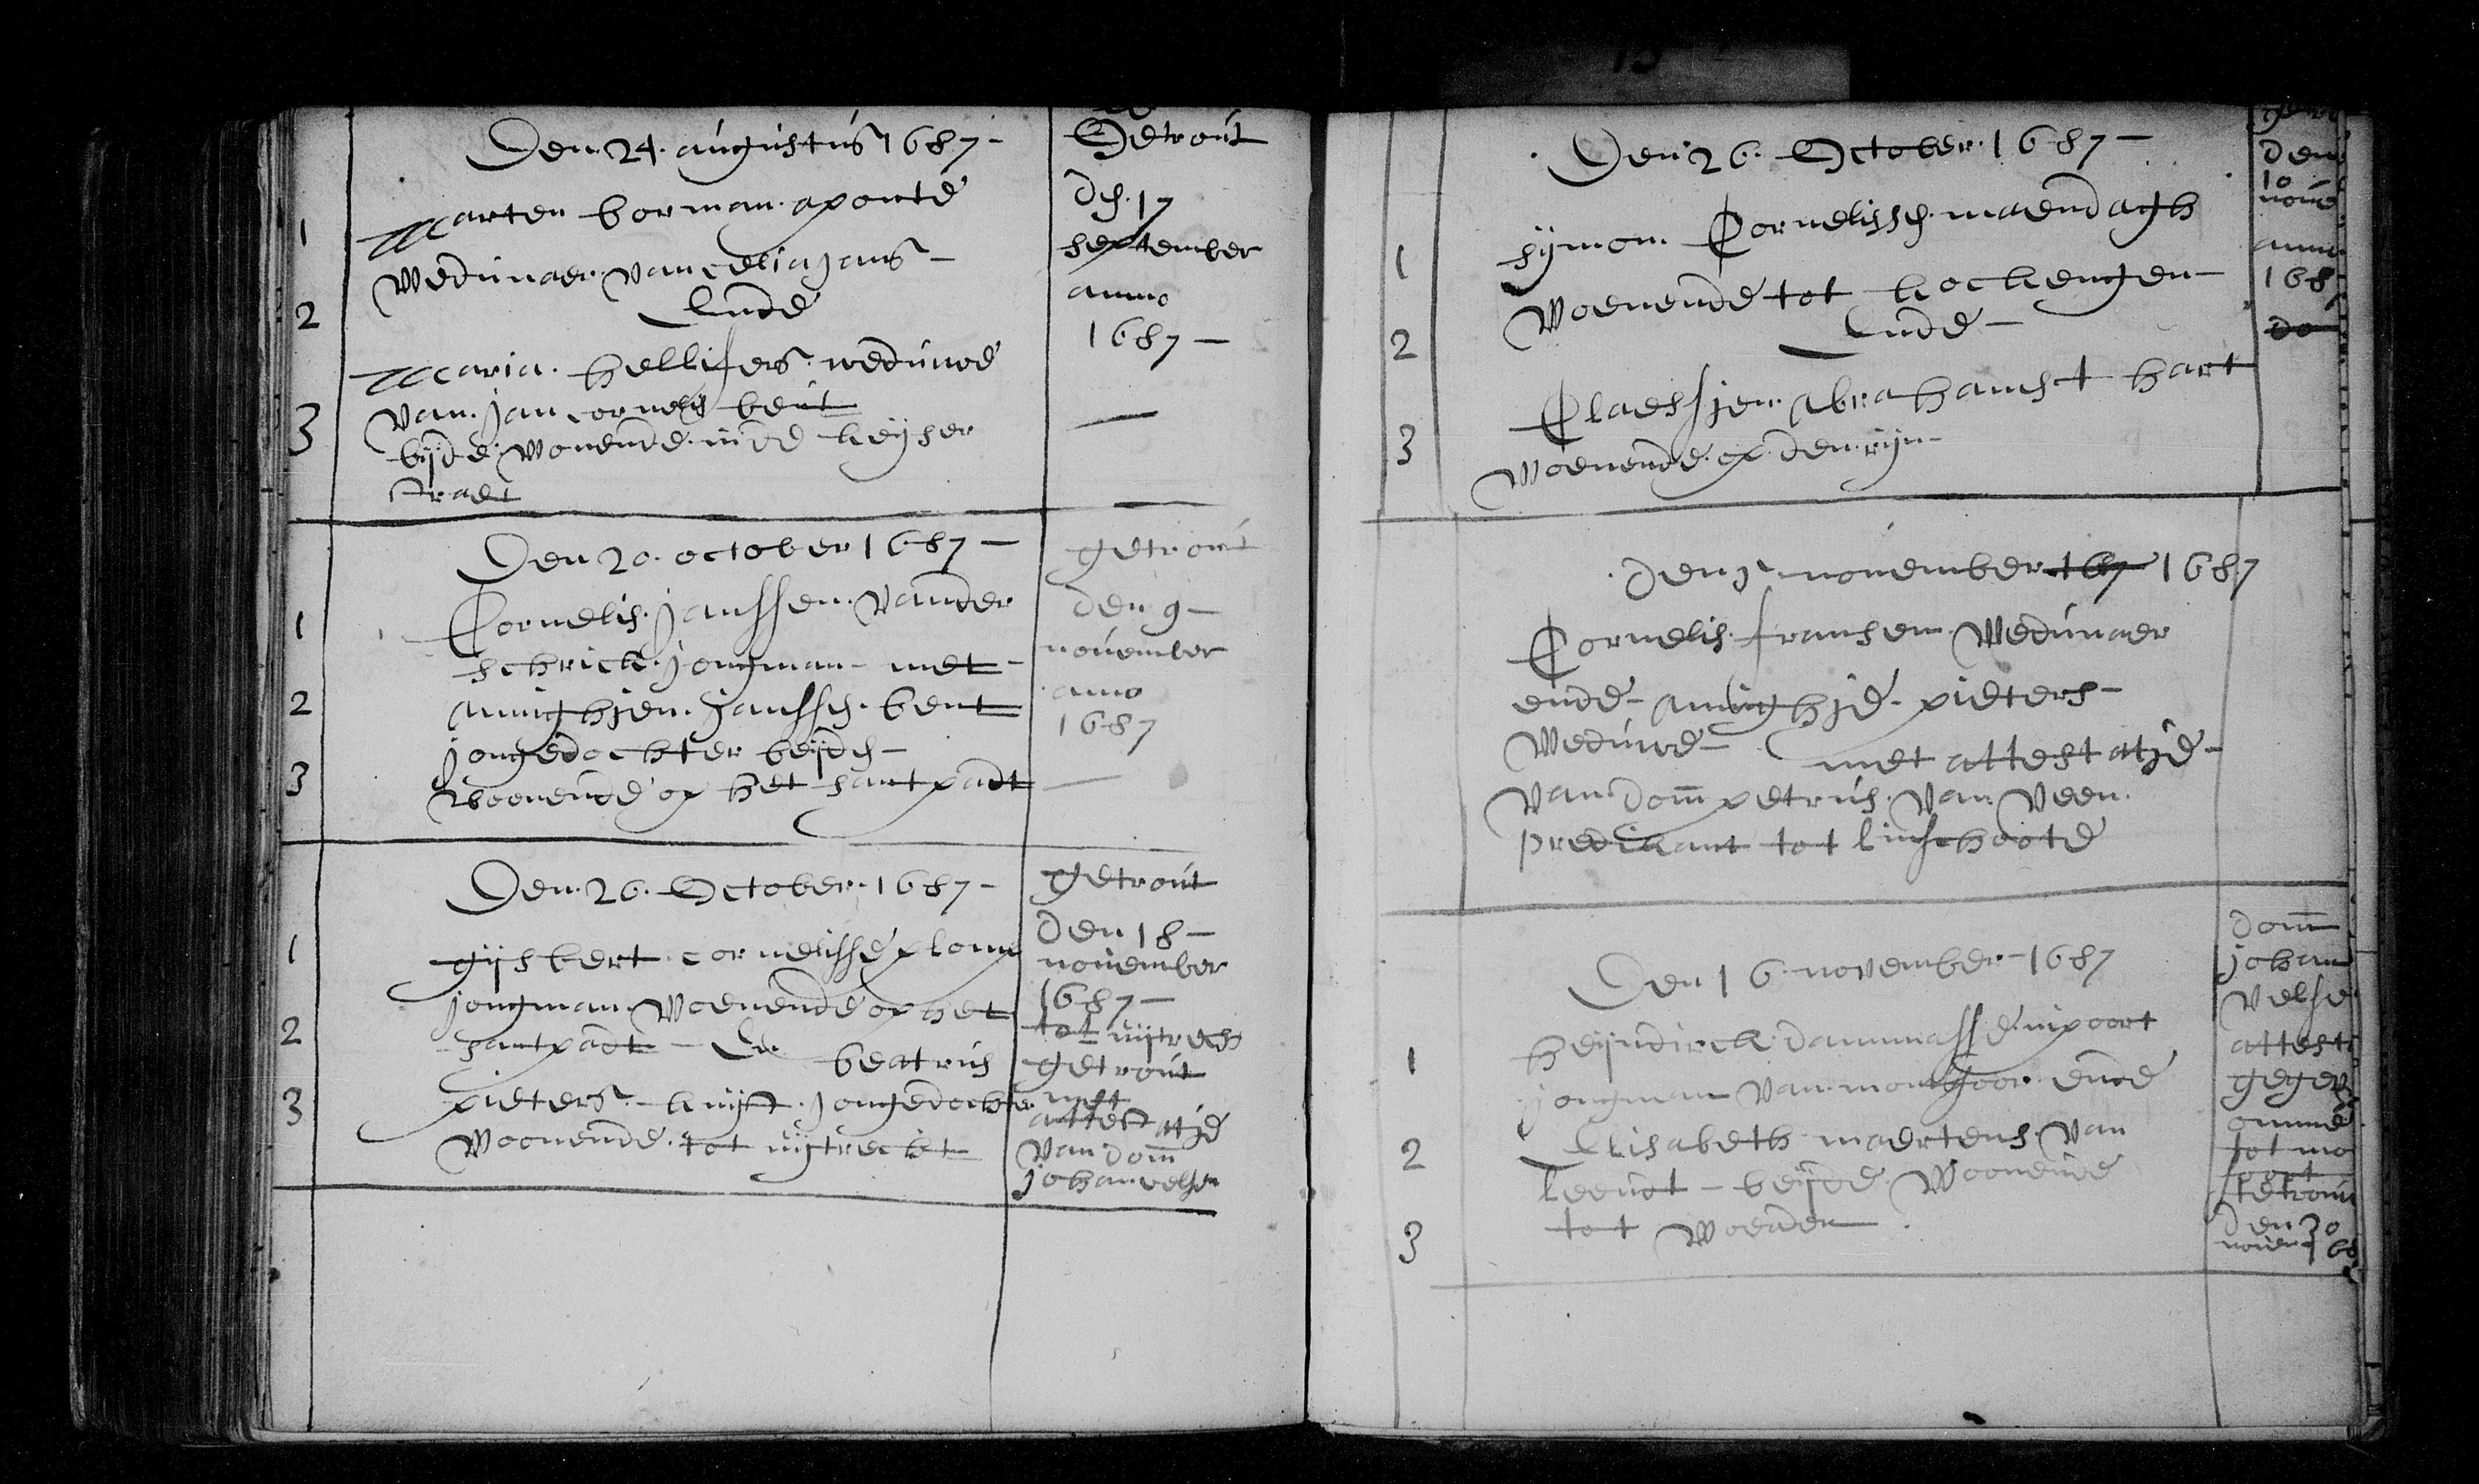 Den 24. augustus 1687 -
1
Marten borman. aponte
wedunaer van celia jans -
2
Ende
Maria. hellifers. weduwe
3
van. jan cornelis bent
beijde. wonende. inde keijser
straet
Getrout
den. 17
september
anno
1687 -
Den 20. october 1687 -
1
Cornelis. janssen. vander
schrick. jongman - met -
2
annighjen. janssen. bent
jongedochter beijden -
3
woonende op het santpadt
getrout
den 9 -
november
anno
1687
Den. 26. October. 1687 -
1
gijsbert. cornelisse plomp
jongman. woenende op het
2
santpadt - En beatris
3
pieters. - kuijst. jongedochter
woonende. tot uijtrecht
getrout
den 18 -
november
1687 -
tot uijtrech
getrout
mett
attestatje
van dom
johan velsen
Den 26. October. 1687 -
1
sijmon. Cornelissen. maendagh
woenende tot kockengen -
2
Ende -
Claessjen. Abrahams t hart
3
woenende. op. den. rijn -
den
10
nove
anno
168
Den 9 november 1687
Cornelis. fransen wedunaer
ende - annighje. pieters -
weduwe - met attestatje -
van dom petrus. van veen.
predicant tot linschoote
Den 16 november - 1687
1
heijndirck. dammasse. inpoort
jongman van. montfoor. ende
2
Elisabeth. maertens. van
leendt - beijde. woonende
3
tot woerden
dom
johan
velse
attest
gegev
omme
tot mo
foort
te trou
den 30
novem 168